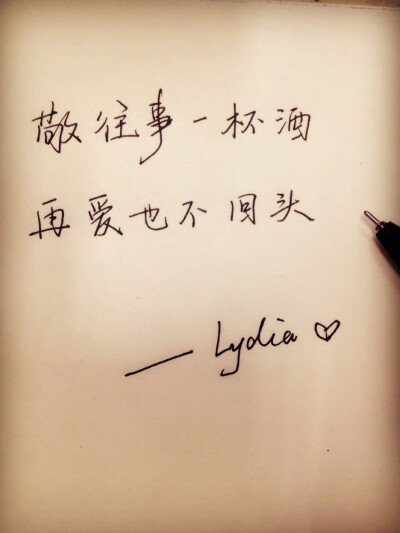 敬往事一杯酒
再爱也不回头
— Lydia ♡